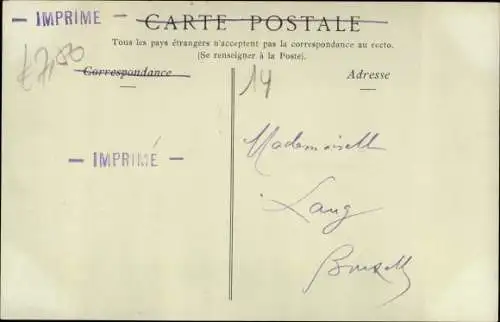 - IMPRIME -
CARTE POSTALE
Tous les pays étrangers n'acceptent pas la correspondance au recto.
(Se renseigner à la Poste).
€7,80
Correspondance
14
Adresse
- IMPRIMÉ -
Mademoiselle
Lang